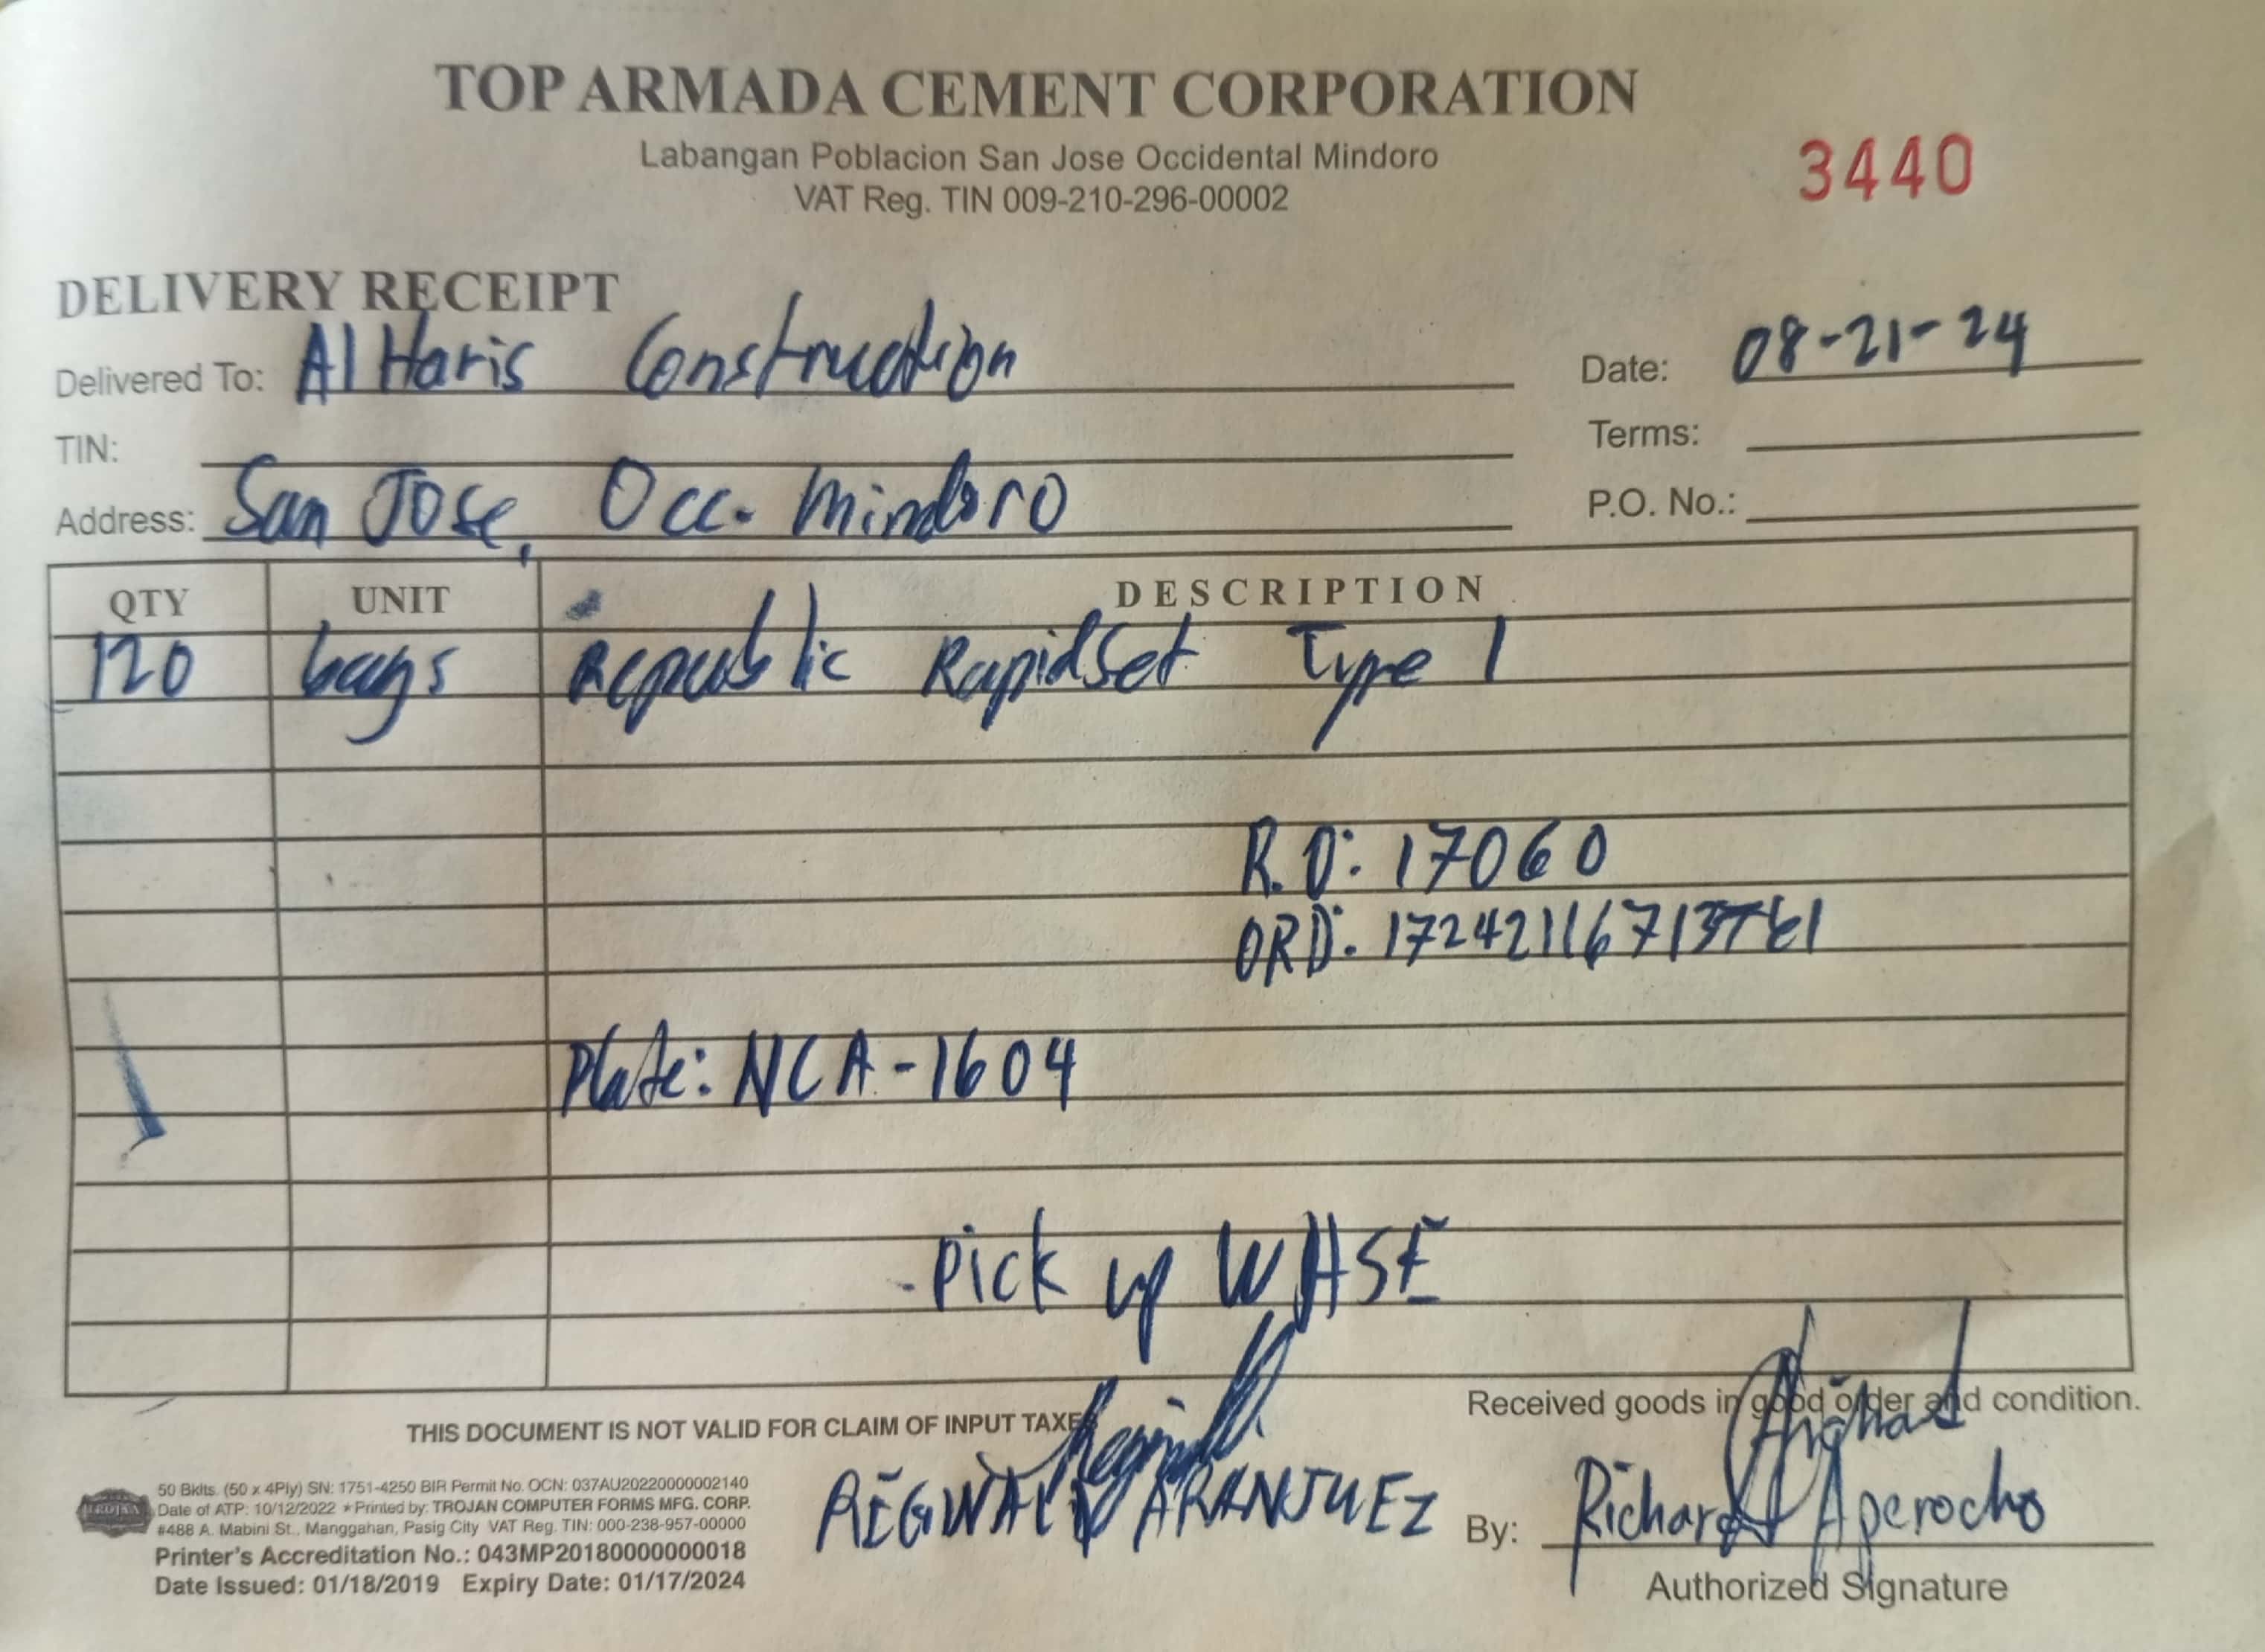 TOP ARMADA CEMENT CORPORATION
Labangan Poblacion San Jose Occidental Mindoro
VAT Reg. TIN 009-210-296-00002
3440
DELIVERY RECEIPT
Delivered To: Al Haris Construction
Date: 08-21-24
TIN:
Terms:
Address: San Jose, Occ. Mindoro
P.O. No.:
QTY UNIT DESCRIPTION
120 bags Republic RapidSet Type 1
R.O: 17060
ORD:
Plate: NCA-1604
- Pick up WHSE
Received goods in good order and condition.
THIS DOCUMENT IS NOT VALID FOR CLAIM OF INPUT TAXES
REGWALD ARANJUEZ
By: Richard Aperocho
Authorized Signature
TROJAN
50 Bklts. (50 x 4Ply) SN: 1751-4250 BIR Permit No. OCN: 037AU20220000002140
Date of ATP: 10/12/2022 ★ Printed by: TROJAN COMPUTER FORMS MFG. CORP.
#488 A. Mabini St., Manggahan, Pasig City VAT Reg. TIN: 000-238-957-00000
Printer's Accreditation No.: 043MP20180000000018
Date Issued: 01/18/2019 Expiry Date: 01/17/2024